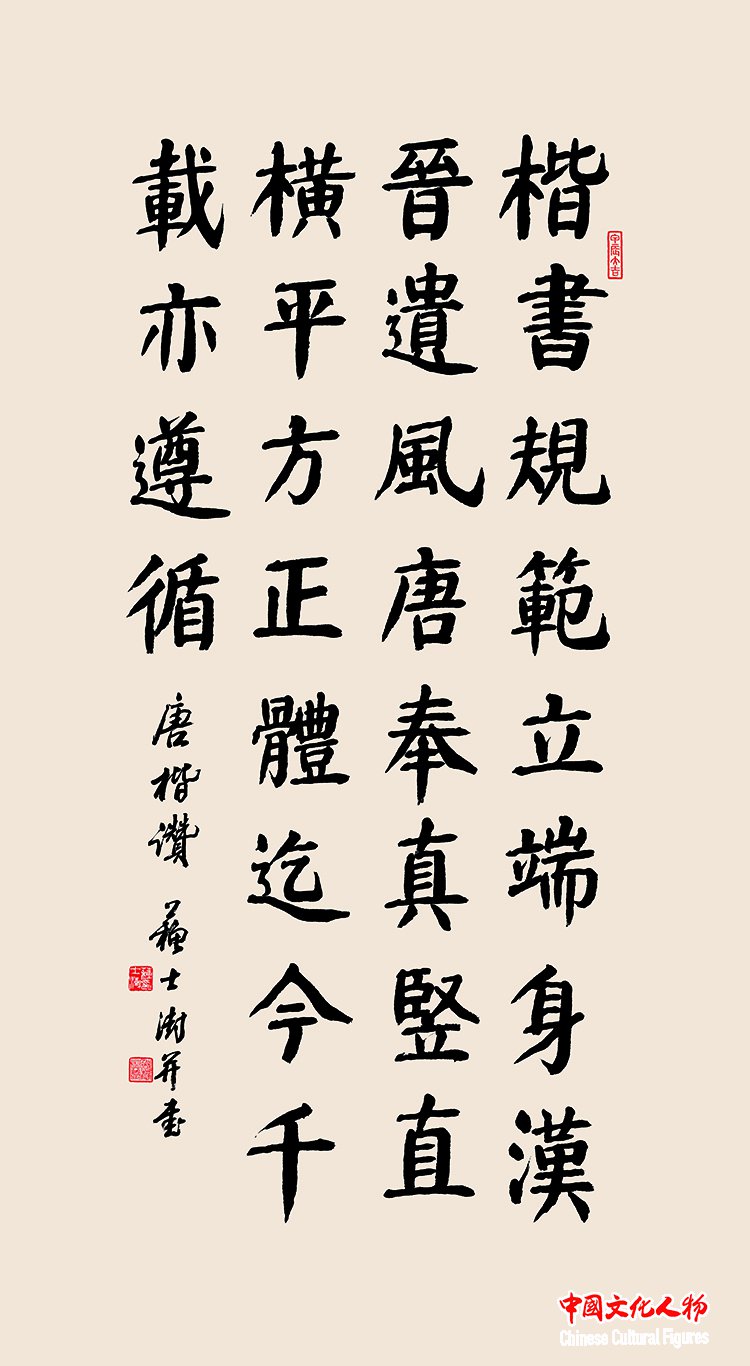 楷書規範立端身漢
晉遺風唐奉真竪直
橫平方正體迄今千
載亦遵循
唐楷讚 蘇士澍并書
中國文化人物
Chinese Cultural Figures